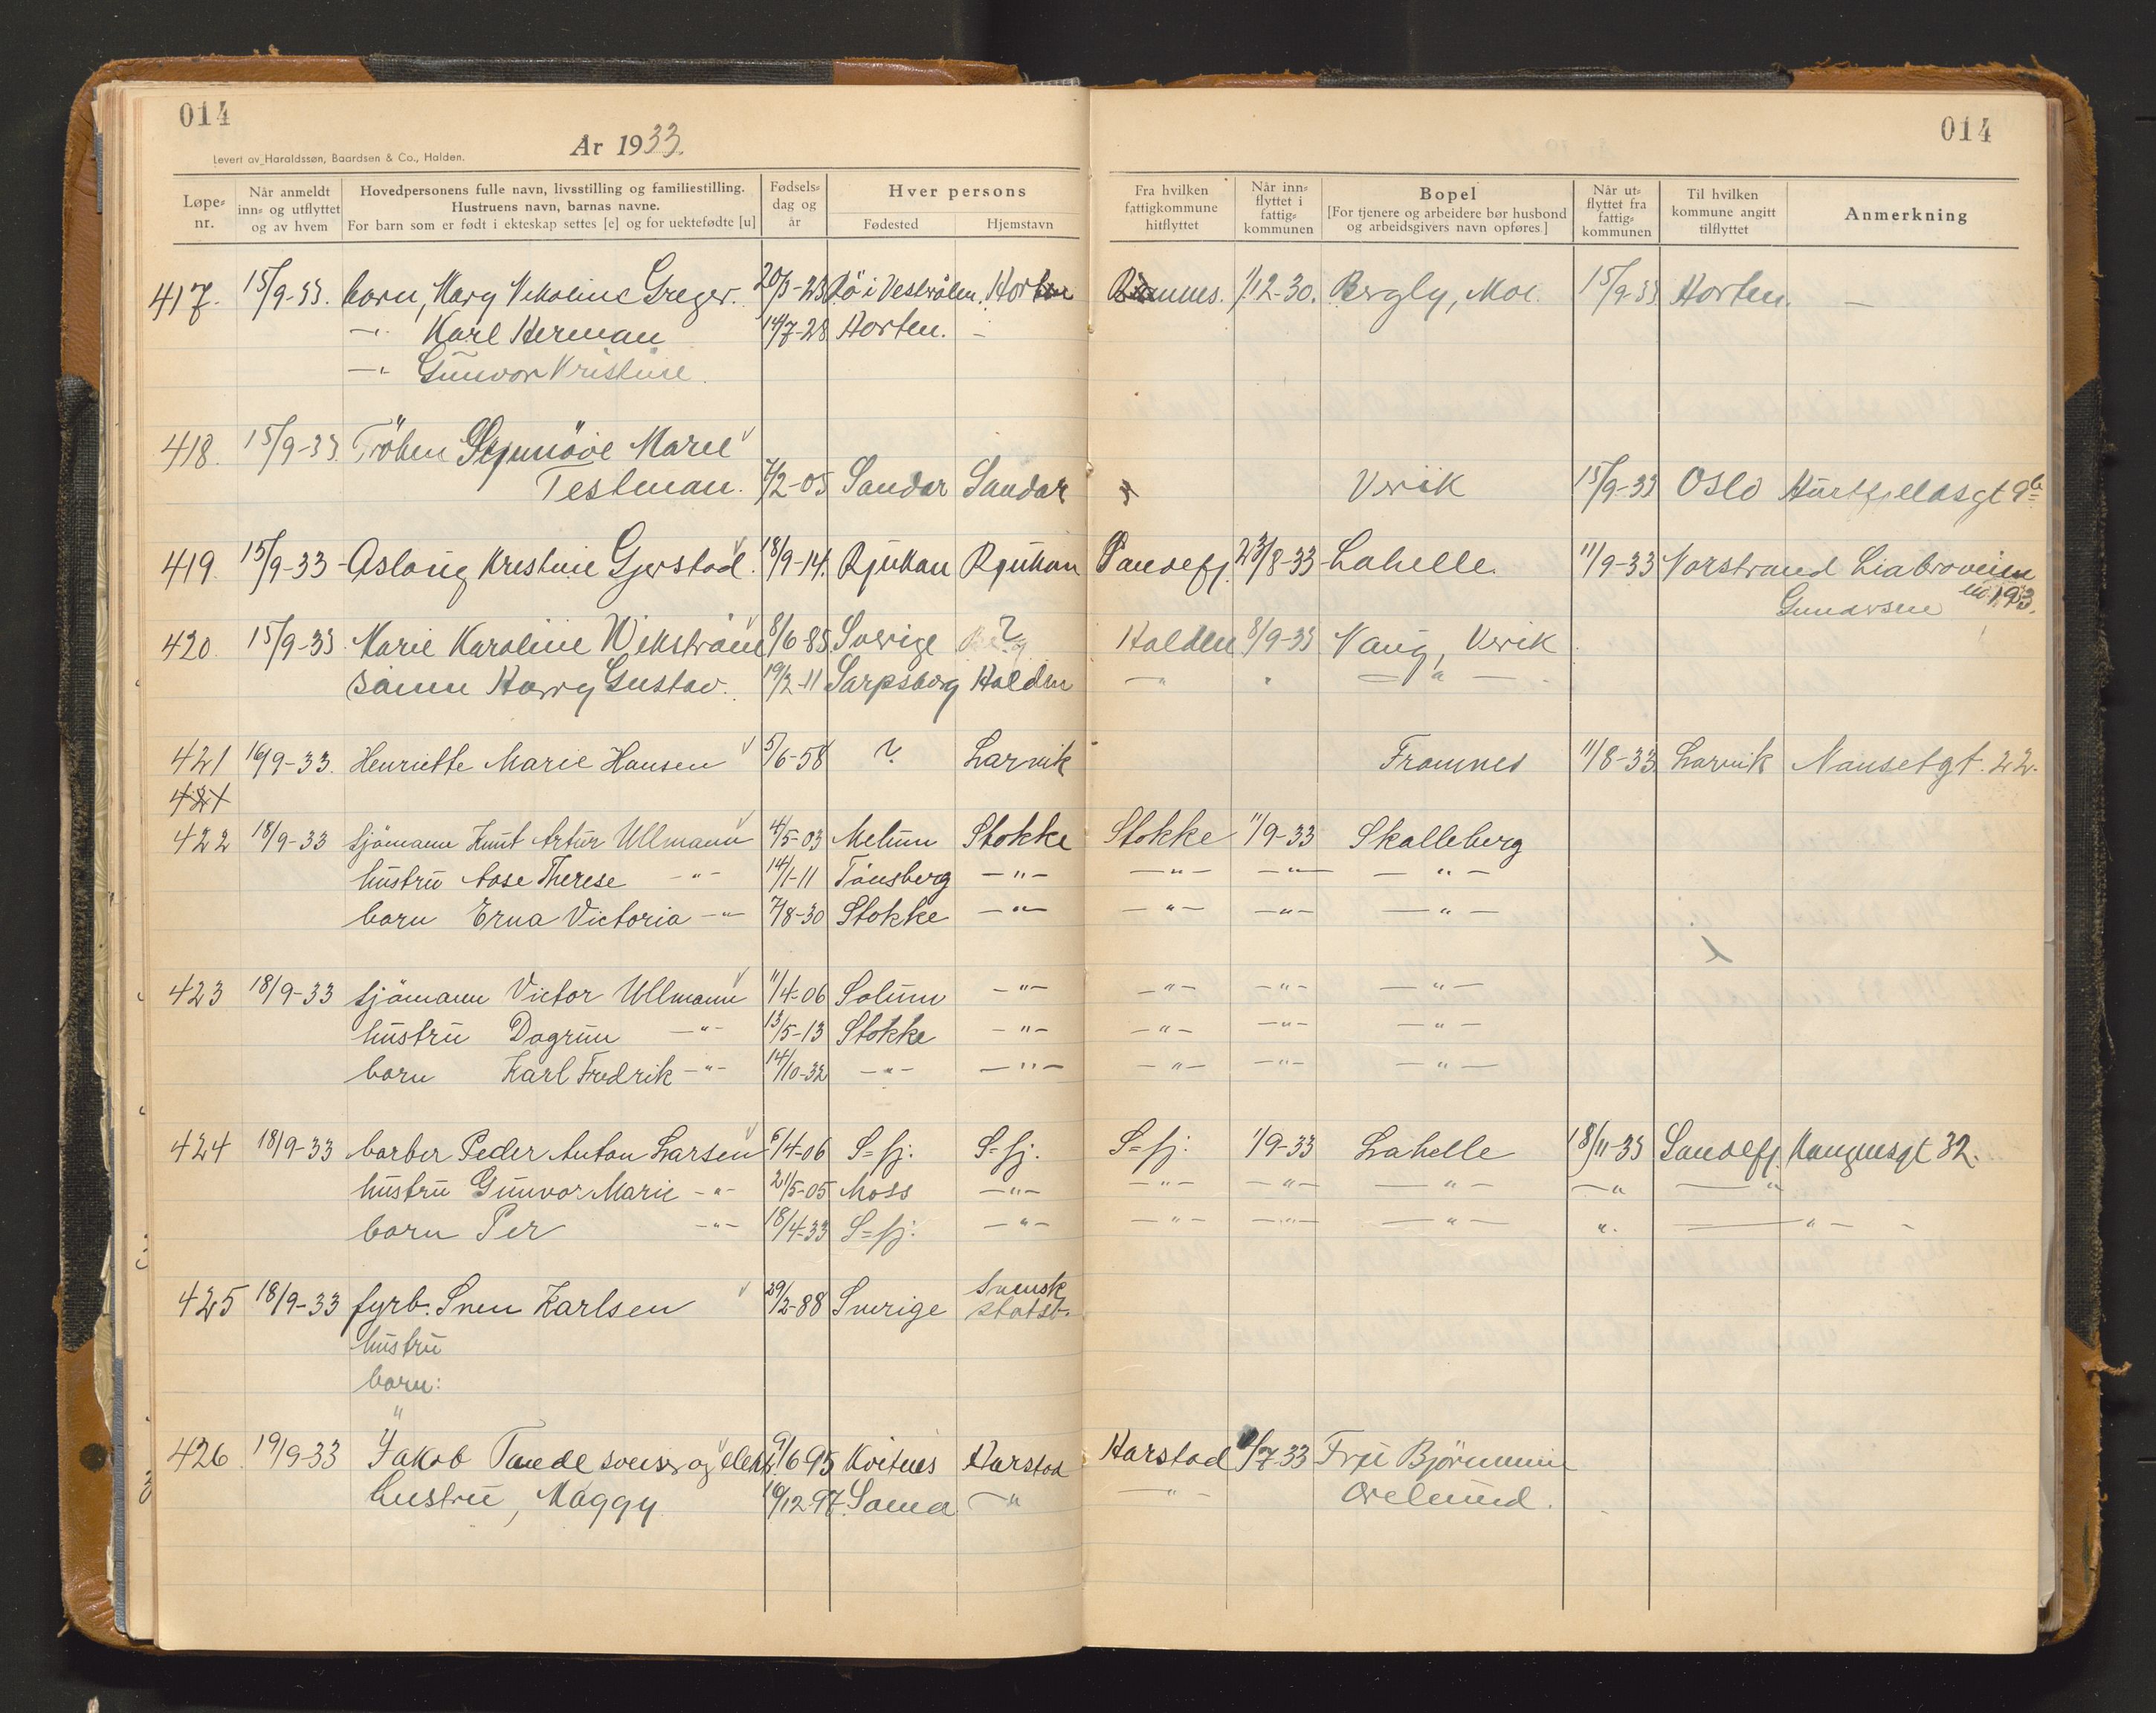 014
År 1933.
Levert av Haraldssøn, Baardsen & Co., Halden.
014
Løpe-nr.
Når anmeldt inn- og utflyttet og av hvem
Hovedpersonens fulle navn, livsstilling og familiestilling. Hustruens navn, barnas navne. For barn som er født i ekteskap settes [e] og for uektefødte [u]
Fødsels-dag og år
Hver persons
Fødested
Hjemstavn
Fra hvilken fattigkommune hitflyttet
Når inn-flyttet i fattig-kommunen
Bopel [For tjenere og arbeidere bør husbond og arbeidsgivers navn opføres]
Når ut-flyttet fra fattig-kommunen
Til hvilken kommune angitt tilflyttet
Anmerkning
417. 15/9-33. barn, Mary Nikoline Greger. 20/3-23 Bö i Vesterålen, Horten 1/12-30. Bergly, Moe. 15/9-33 Horten. —
—"— Karl Herman 14/7-28 Horten. —
—"— Gunvor Kristine.
418. 15/9-33. Fröken Synnöve Marie
Testman. 7/2-05 Sandar Sandar Vesrik 15/9-33 Oslo
419. 15/9-33 Aslaug Kristine Gjerstad. 18/9-14. Rjukan Rjukan Sandefj. 23/8-33 Lahelle. 11/9-33 Norstrand Liabroveien
Gunarsen no. 193.
420. 15/9-33. Marie Karoline Wikström 8/6-85 Sverige ? Halden 8/9-33 Haug, Vesrik
sönn Harry Gustav. 19/2-11 Sarpsborg Halden —"— " —"—
421 16/9-33. Henriette Marie Hansen 5/6-58 ? Larvik Framnes 11/8-33 Larvik Nansetgt. 22.
421
422 18/9-33 sjömann Knut Artur Ullmann 4/5-03 Melum Stokke Stokke 11/9-33 Skalleberg
hustru Aase Therese —"— 14/1-11 Tönsberg —"— —"— —"— —"—
barn Erna Victoria —"— 7/8-30 Stokke —"— —"— —"— —"—
423 18/9-33 sjömann Victor Ullmann 11/4-06 Solum —"— —"— —"— —"—
hustru Dagrun —"— 13/5-13 Stokke —"— —"— —"— —"—
barn Karl Fredrik —"— 14/10-32 —"— —"— —"— —"— —"—
424 18/9-33 barber Peder Anton Larsen 6/4-06 S=fj. S=fj. S=fj. 1/9-33 Lahelle 18/11-33 Sandefj. Haugensgt 32.
hustru Gunvor Marie —"— 21/5-05 Moss —"— —"— —"— —"— —"— —"—
barn Per —"— 18/4-33 S=fj. —"— —"— —"— —"— " —"—
425 18/9-33 fyrb. Sven Karlsen 29/2-88 Sverige Svensk statsb.
hustru
barn:
"
426. 19/9-33 Jakob Tande og elektr. 9/6 95 Kvitnes Harstad Harstad 1/7-33 Fru Björnumn
hustru, Maggy 10/12 97. Sama —"— —"— Orelund.